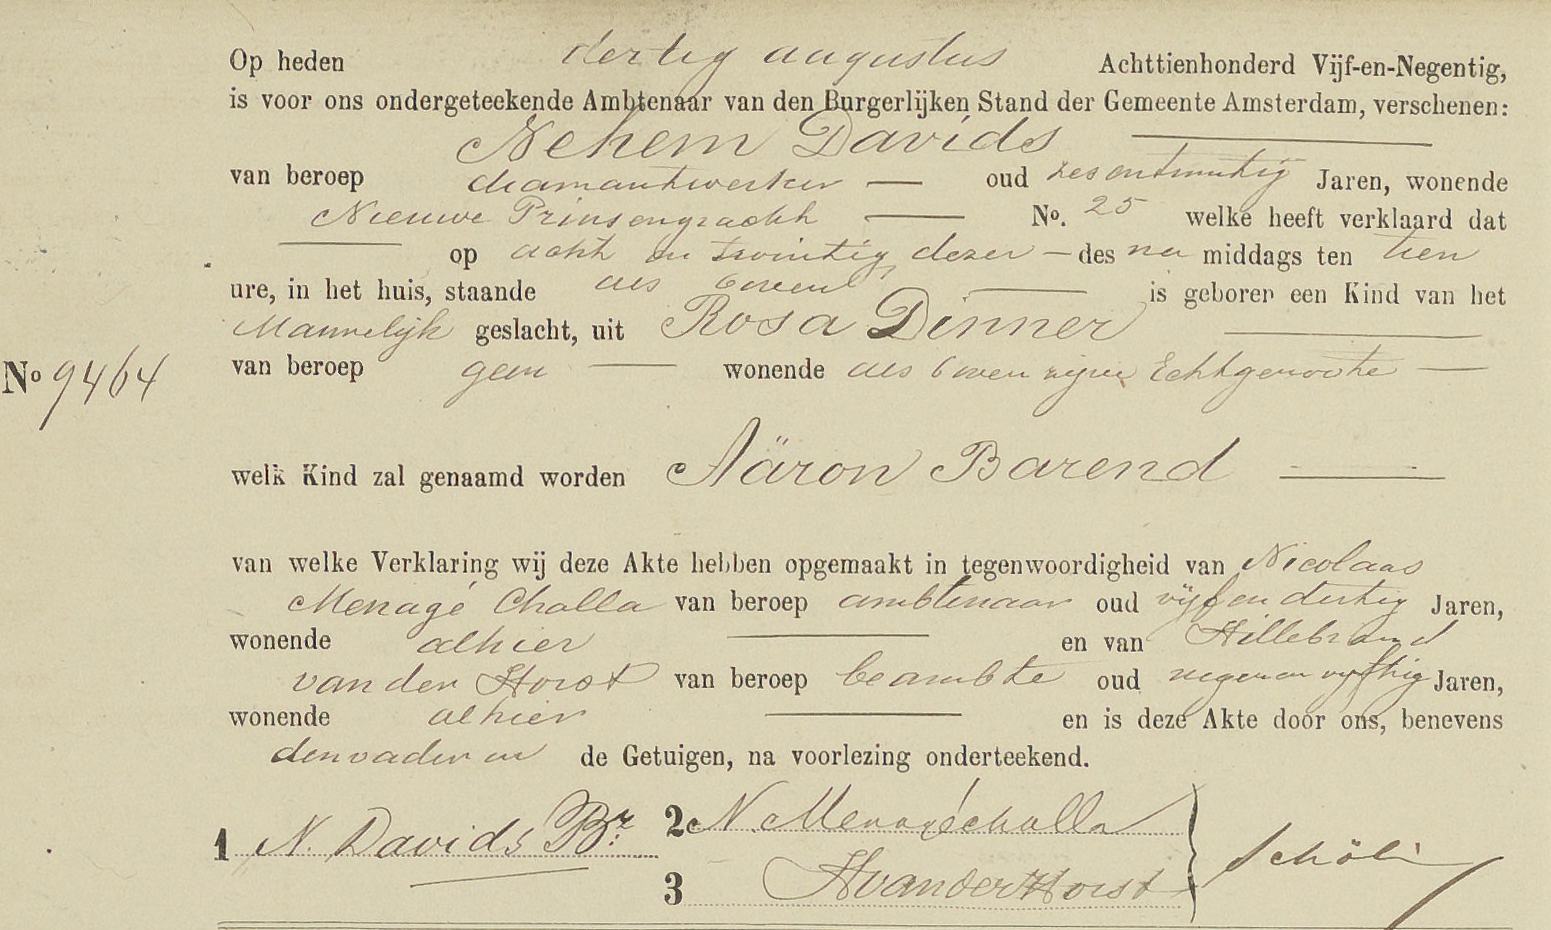 Op heden dertig augustus Achttienhonderd Vijf-en-Negentig,
is voor ons ondergeteekende Ambtenaar van den Burgerlijken Stand der Gemeente Amsterdam, verschenen:
Nehem Davids
van beroep diamantwerker oud zes en twintig Jaren, wonende
Nieuwe Prinsengracht No. 25 welke heeft verklaard dat
op acht en twintig dezer des na middags ten tien
ure, in het huis, staande als boven is geboren een Kind van het
Mannelijk geslacht, uit Rosa Dinner
No 9464 van beroep geen wonende als boven zijne Echtgenoote
welk Kind zal genaamd worden Aäron Barend
van welke Verklaring wij deze Akte hebben opgemaakt in tegenwoordigheid van Nicolaas
Menagé Challa van beroep ambtenaar oud vijf en dertig Jaren,
wonende alhier en van Hillebrand
van der Horst van beroep beambte oud negen en vijftig Jaren,
wonende alhier en is deze Akte door ons, benevens
den vader en de Getuigen, na voorlezing onderteekend.
1 N. Davids Bz. 2 N. Menagé Challa
3 HvanderHorst